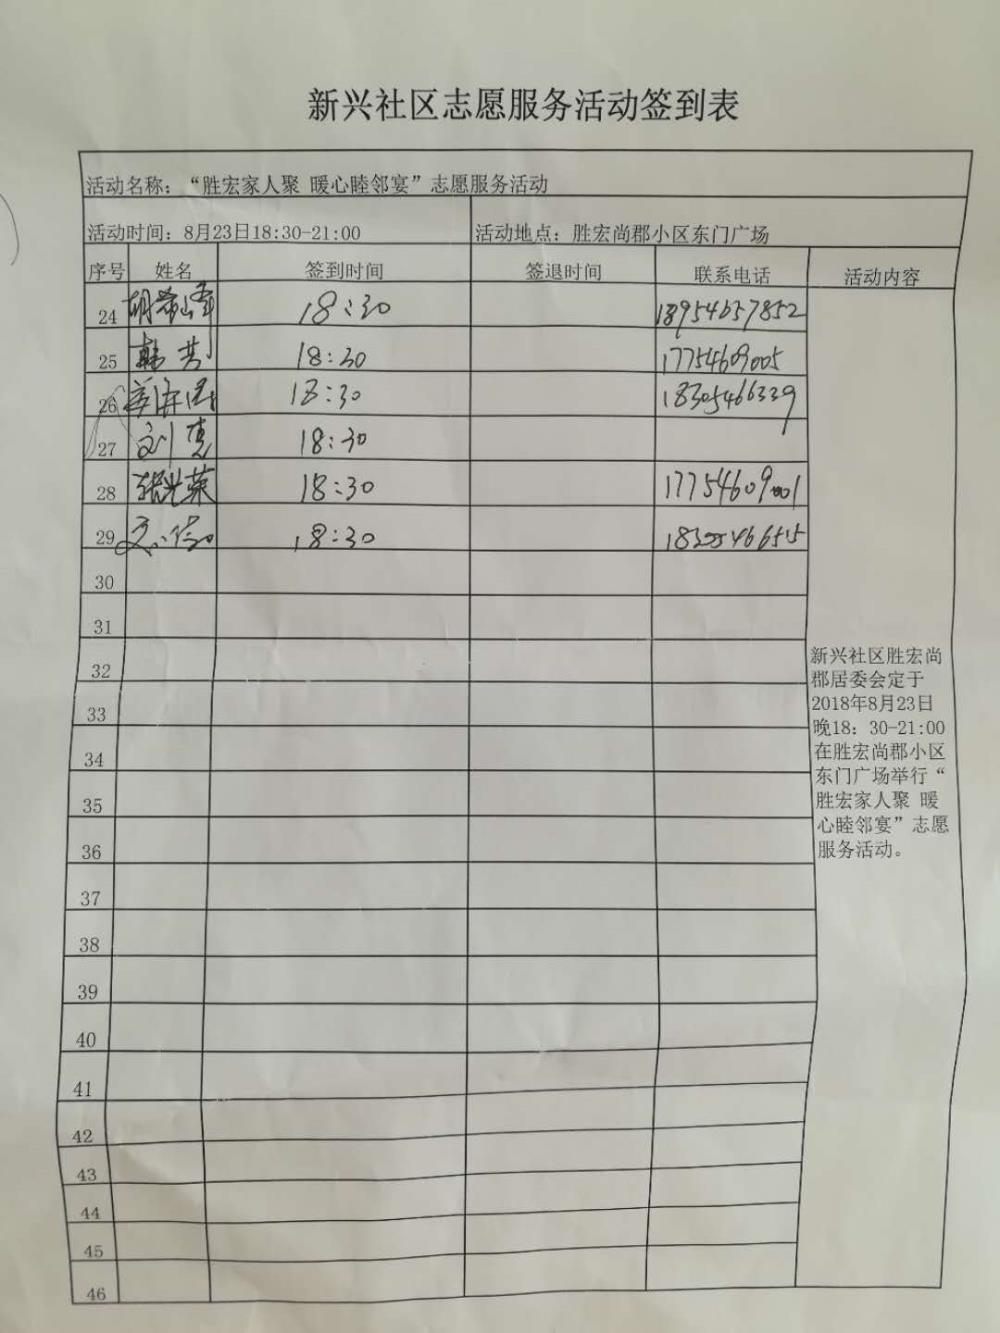 新兴社区志愿服务活动签到表
活动名称：“胜宏家人聚 暖心睦邻宴”志愿服务活动
活动时间：8月23日18:30-21:00 活动地点：胜宏尚郡小区东门广场
序号 姓名 签到时间 签退时间 联系电话 活动内容
24 胡希峰 18:30 18954657852
25 韩芳 18:30 17754609005
26 姜海 18:30 18305466339
27 刘亮 18:30
28 张光荣 18:30 17754609001
29 18:30
30
31
32
33
34
35
36
37
38
39
40
41
42
43
44
45
46
新兴社区胜宏尚
郡居委会定于
2018年8月23日
晚18：30-21:00
在胜宏尚郡小区
东门广场举行“
胜宏家人聚 暖
心睦邻宴”志愿
服务活动。